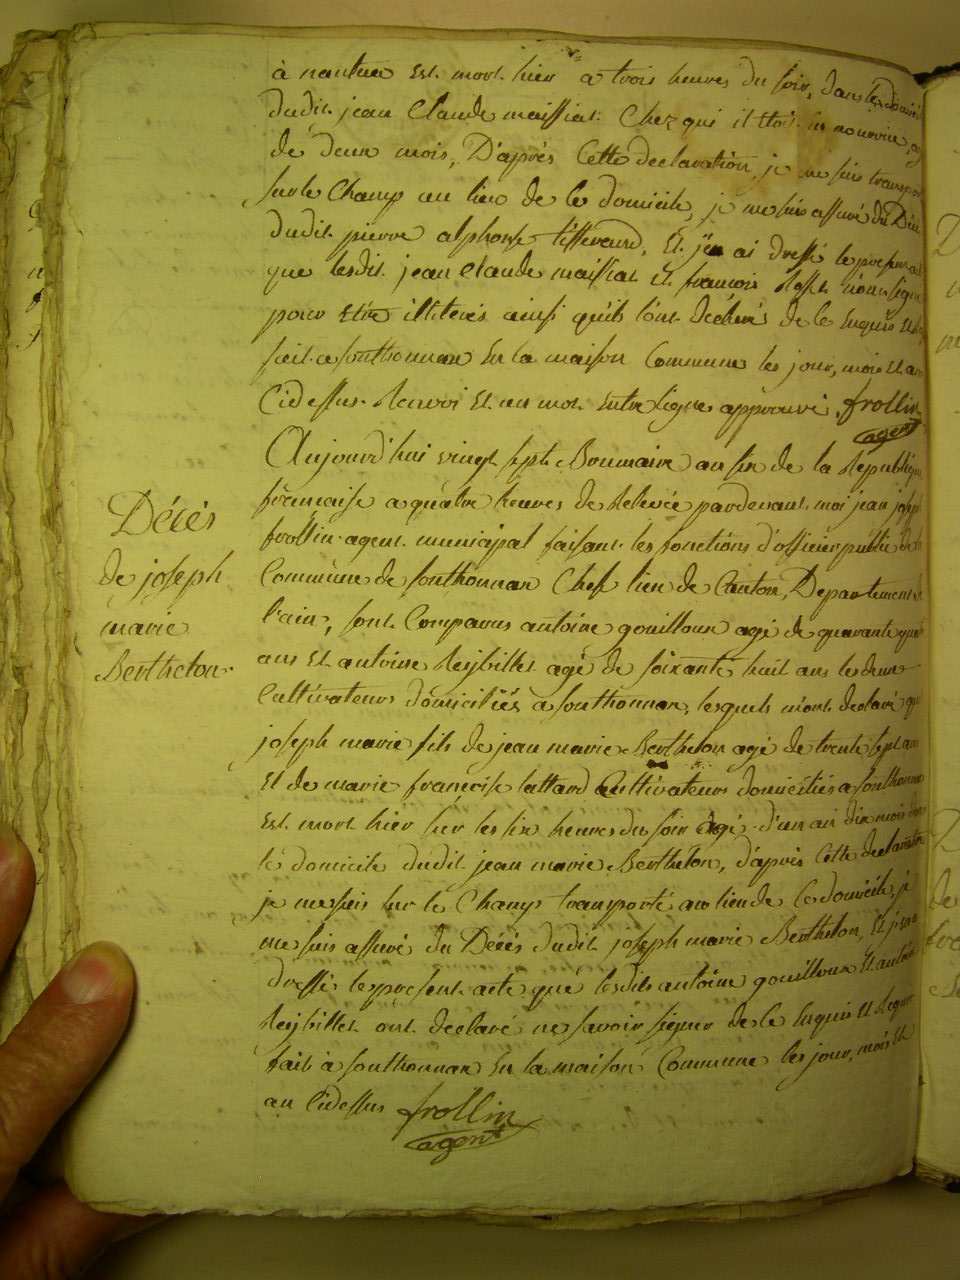 à nantua Est mort hier à trois heures du soir, dans le domicile
dudit jean Claude maissiat Chez qui il Etoit En nourrice, agé
de deux mois, D'après Cette declaration, je me suis transporté
sur le Champ au lieu de Ce domicile, je me suis assuré du Décè
dudit pierre alphonse, Et j'en ai dressé le present act
que lesdit jean Claude maissiat Et francois Rosset n'ont signé
pour Etre illiterés ainsi qu'ils l'ont déclaré de Ce Enquis Et
fait a sonthonnax En la maison Commune les jour, mois Et an
Cidessus. Renvoi Et un mot Entre lignes approuvé. frollin
agent
Aujourd'hui vingt sept Brumaire an six de la Republique
francaise a quatre heures de Relevée pardevant moi jean joseph
frollin agent municipal faisant les fonctions d'officier public de la
Commune de sonthonnax Chef lieu de Canton, Departement de
l'ain, sont Comparus antoine gouilloux agé de quarante quat
ans Et antoine Reybillet agé de soixante huit ans les deux
Cultivateurs domiciliés a sonthonnax, lesquels m'ont declaré que
joseph marie fils de jean marie Berthelon agé de trente sept ans
Et de marie françoise lattard Cultivateurs domiciliés a sonthonna
Est mort hier sur les six heures du soir agé d'un an dix mois dans
le domicile dudit jean marie Berthelon, d'après Cette declaration
je me suis sur le Champ transporté au lieu de Ce domicile, je
me suis assuré du Décès dudit joseph marie Berthelon, Et j'en ai
dressé le present acte que lesdits antoine gouilloux Et antoine
Reybillet ont declaré ne savoir signer de Ce Enquis Et Requis
fait à sonthonnax En la maison Commune les jour, mois Et
an Cidessus frollin
agent
Décès
de joseph
marie
Berthelon